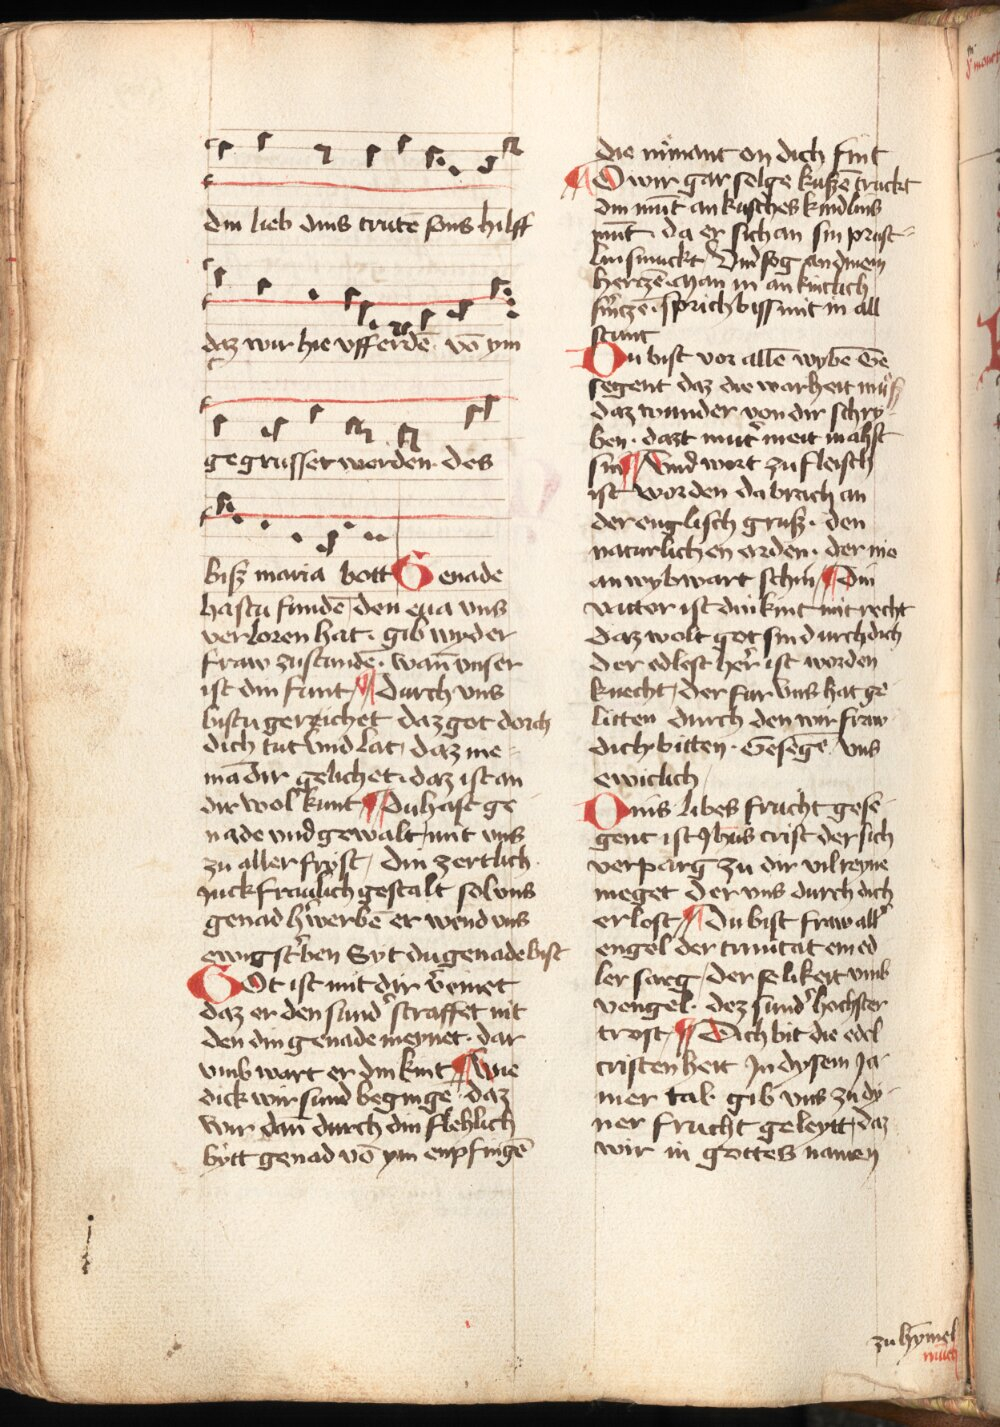 din lieb dins trutē sons hilff
daz wir hie vff erdē vō ym
gegrusser werden des
bisz maria bott Genade
hastu fundē den eua vns
verloren hat · gib wyder
fraw zu standē · wañ vnser
ist din funt ¶ Durch vns
bistu gerzichet daz got dorch
dich tut vnd lat / daz nie-
mā dir gelichet · daz ist an
dir wol kunt ¶ Du hast ge
nade vnd gewalt / mit vns
zu aller fryst / din zertlich
juckfraulich gestalt sol vns
genad h'werbē er wend vns
ewigst'ben Syt du genade bist
Got ist mit dir v'einet
daz er den sund' straffet nit
den din genade meynet · dar
vmb wart er din kint ¶ Wie
dick wir sund begingē daz
wir dañ durch din flehlich
bytt genad vō ym enpfingē
die nimant on dich fint
¶ O wir gar selge kuszē truckt
din mūt an kusches kindlins
mūt · da er sich an sin prust-
lin smuckt Vnd sog an dinem
hertzē · man in an kintlich
smtzē · sprich biss mit in all
stunt
Du bist vor allē wybē Ge
segent daz die warheit müsz
daz wunder von dir schry-
ben · dazt mut' meit mahst
sin ¶ Vnd wort zu fleisch
ist worden da brach an
der englisch grusz · den
naturlichen orden · der nie
an wyb wart schin ¶ Din
vatter ist din kint mit recht
daz wolt got sin durch dich
der edlest her' ist worden
knecht / der fur vns hat ge
litten durch den wir fraw
dich bitten · Gesegē vns
ewiclich
Dins libes frucht gese-
gent ist Jhus crist der sich
verparg zu dir vil reyne
meget der vns durch dich
erlost ¶ Du bist fraw all'
engel der trinitat ein ed
ler sarg / der selikeit vmb
vengel · dez sund' hochster
trost / ¶ Dich bit die edel
cristenheit In dysem Ja-
mer tal · gib vns zu dy-
ner frucht geleytt / daz
wir in gottes namen
zu hymel